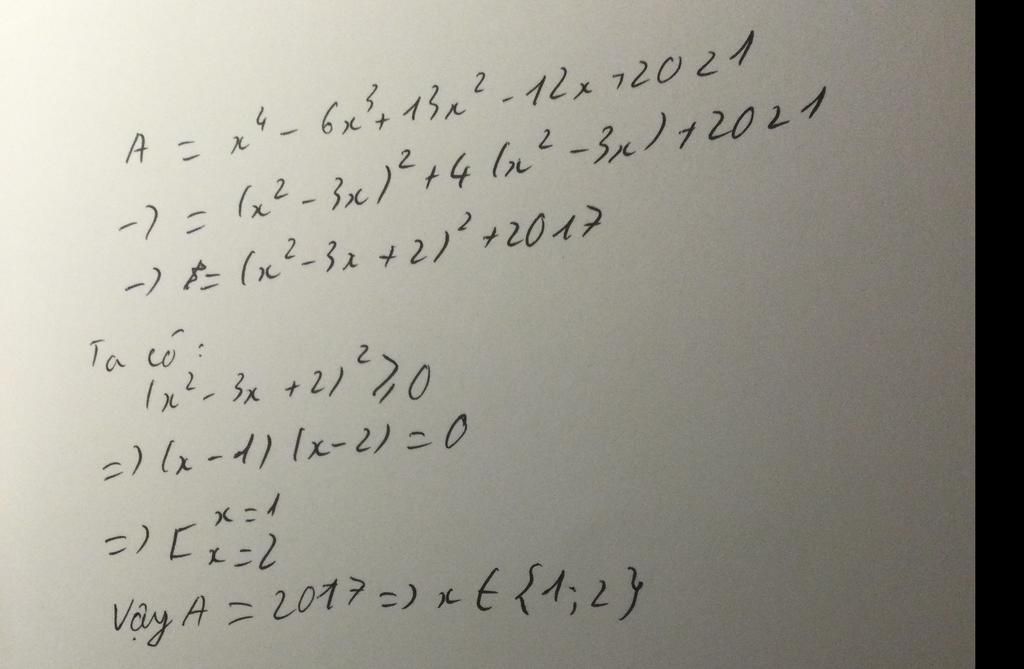 A = x⁴ - 6x³ + 13x² - 12x + 2021
-) = (x² - 3x)² + 4 (x² - 3x) + 2021
-) = (x² - 3x + 2)² + 2017
Ta có:
(x² - 3x + 2)² ⩾ 0
=) (x - 1) (x - 2) = 0
=) [ x = 1
x = 2
Vậy A = 2017 =) x ∈ {1; 2}